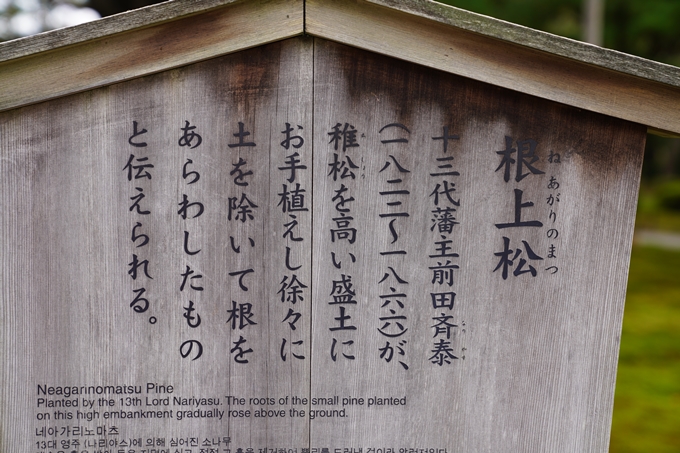 根上松
ねあがりのまつ
十三代藩主前田斉泰
(一八二二〜一八六六)が、
稚松を高い盛土に
お手植えし徐々に
土を除いて根を
あらわしたもの
と伝えられる。
Neagarinomatsu Pine
Planted by the 13th Lord Nariyasu. The roots of the small pine planted
on this high embankment gradually rose above the ground.
네아가리노마츠
13대 영주 (나리야스)에 의해 심어진 소나무